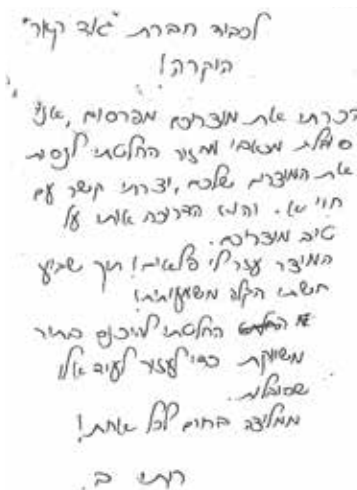 לכבוד חברת "גוד קאר"
היקרה!
הכרתי את מוצריכם מפרסום, אני
סובלת מכאבי מחזור החלטתי לנסות
את המוצרים שלכם, יצרתי קשר עם
חוי א. והיא הדריכה אותי על
טיב מוצריכם.
המוצר עזר לי פלאים! תוך שבוע
חשתי הקלה משמעותית!
החלטתי להיכנס בתור
משווקת כדי לעזור לעוד אלו
שסובלות.
ממליצה בחום לכל אחת!
רותי ב.